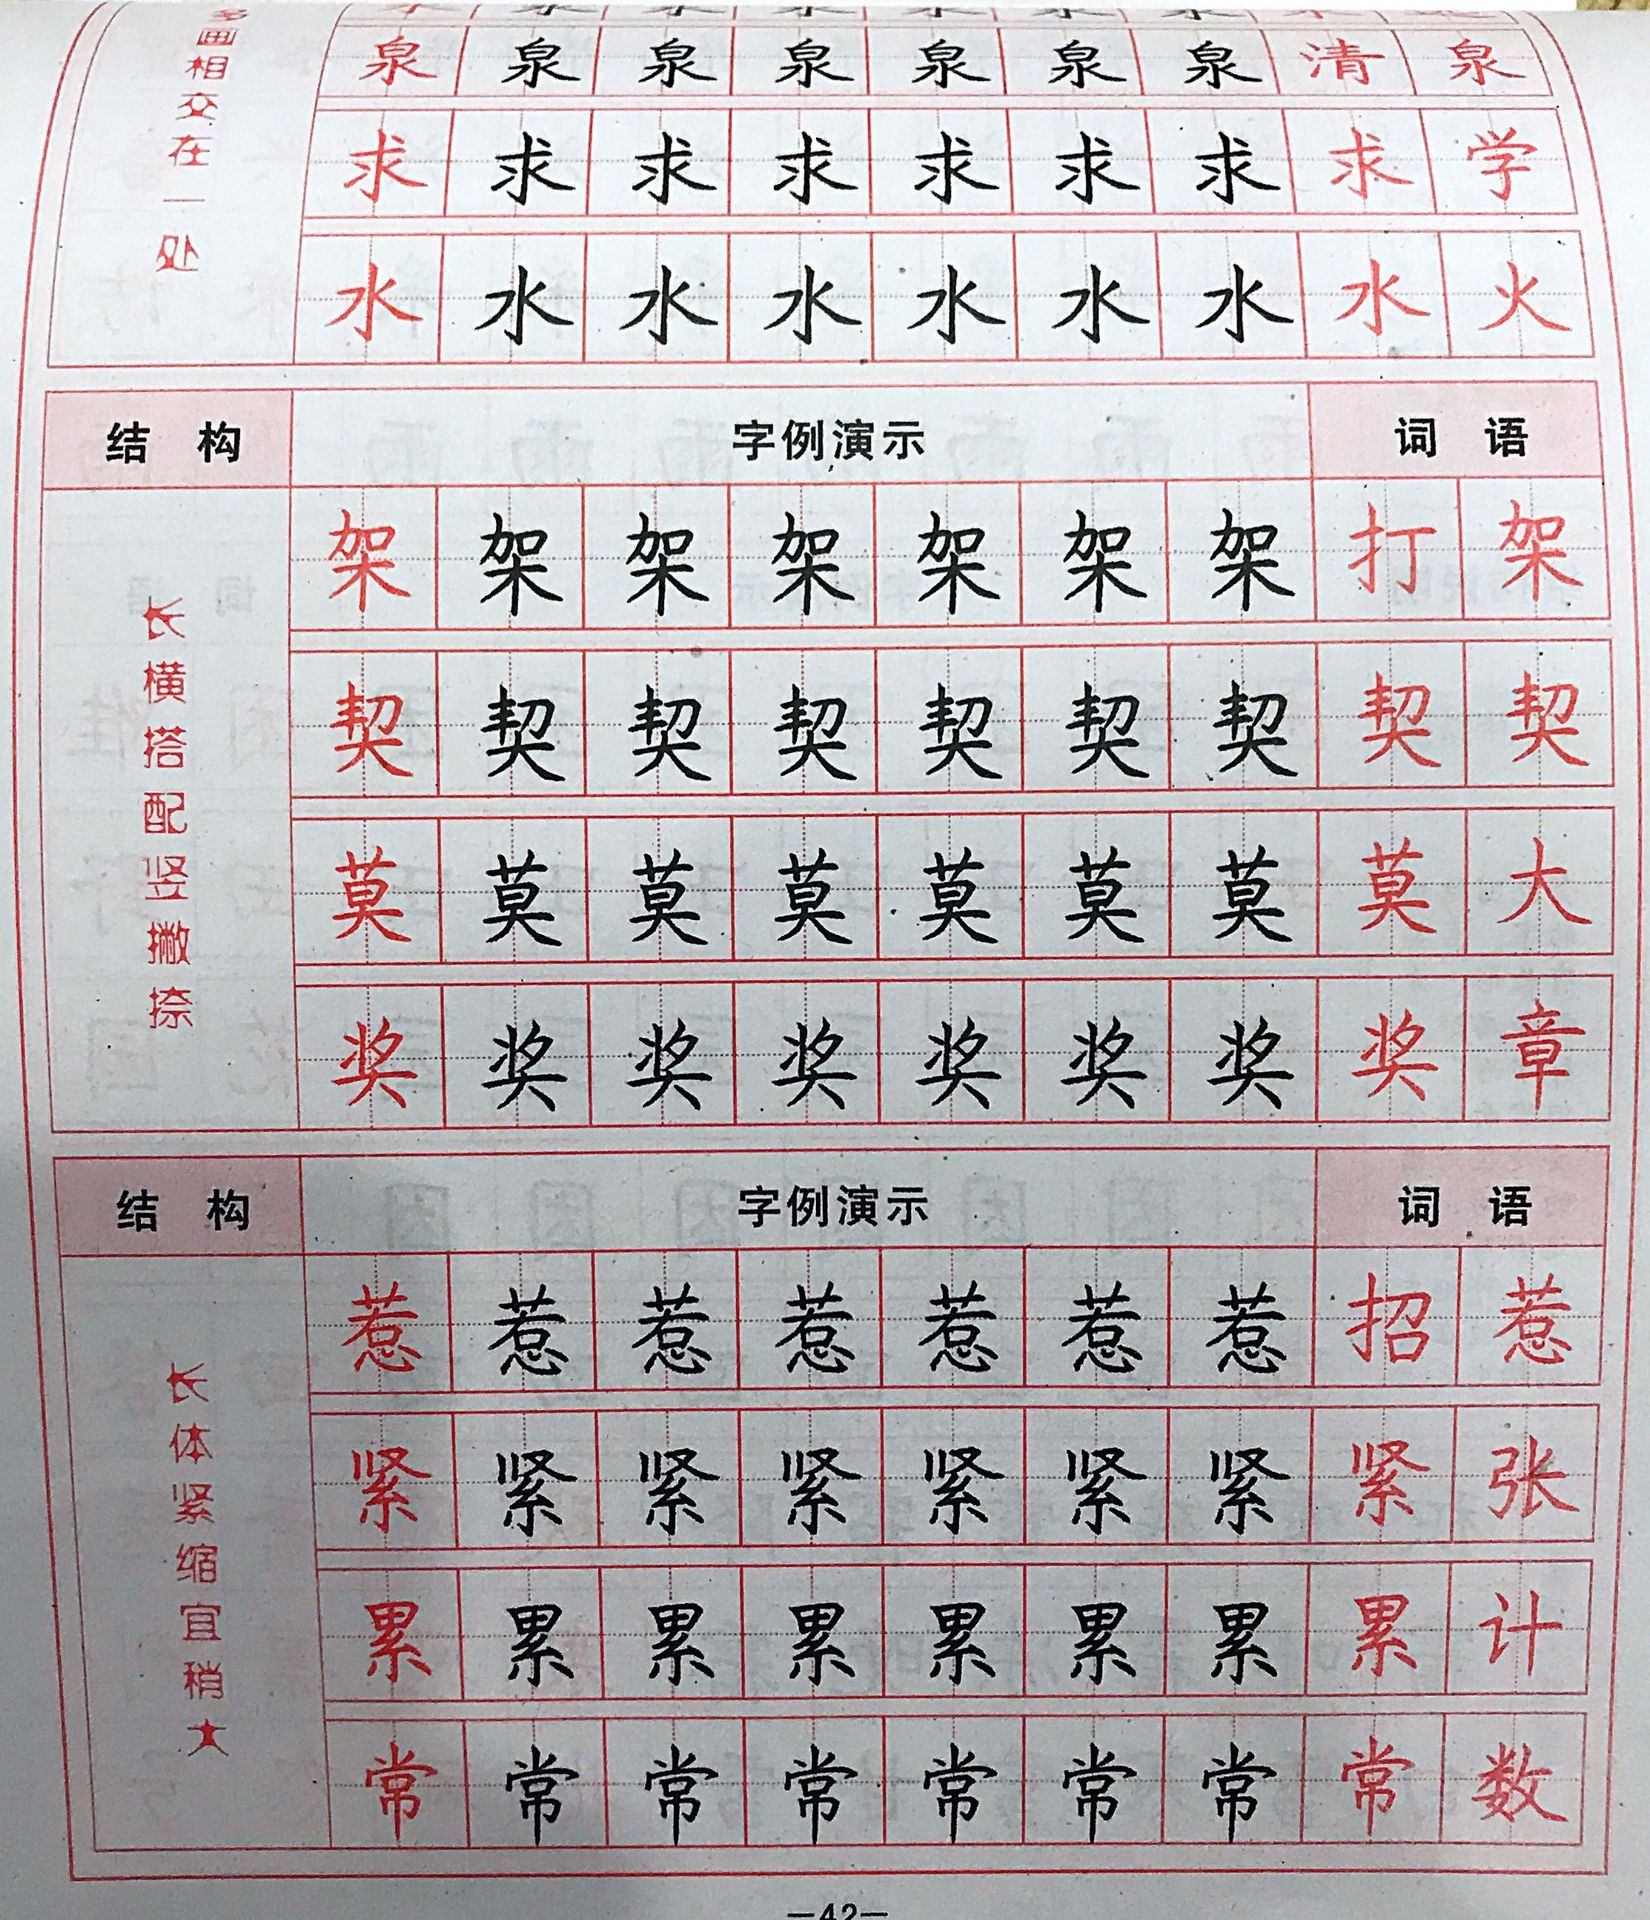 多画相交在一处
泉 泉 泉 泉 泉 泉 泉 清 泉
求 求 求 求 求 求 求 求 学
水 水 水 水 水 水 水 水 火
结 构 字例演示 词 语
长横搭配竖撇捺
架 架 架 架 架 架 架 打 架
契 契 契 契 契 契 契 契 契
莫 莫 莫 莫 莫 莫 莫 莫 大
奖 奖 奖 奖 奖 奖 奖 奖 章
结 构 字例演示 词 语
长体紧缩宜稍大
惹 惹 惹 惹 惹 惹 惹 招 惹
紧 紧 紧 紧 紧 紧 紧 紧 张
累 累 累 累 累 累 累 累 计
常 常 常 常 常 常 常 常 数
—42—